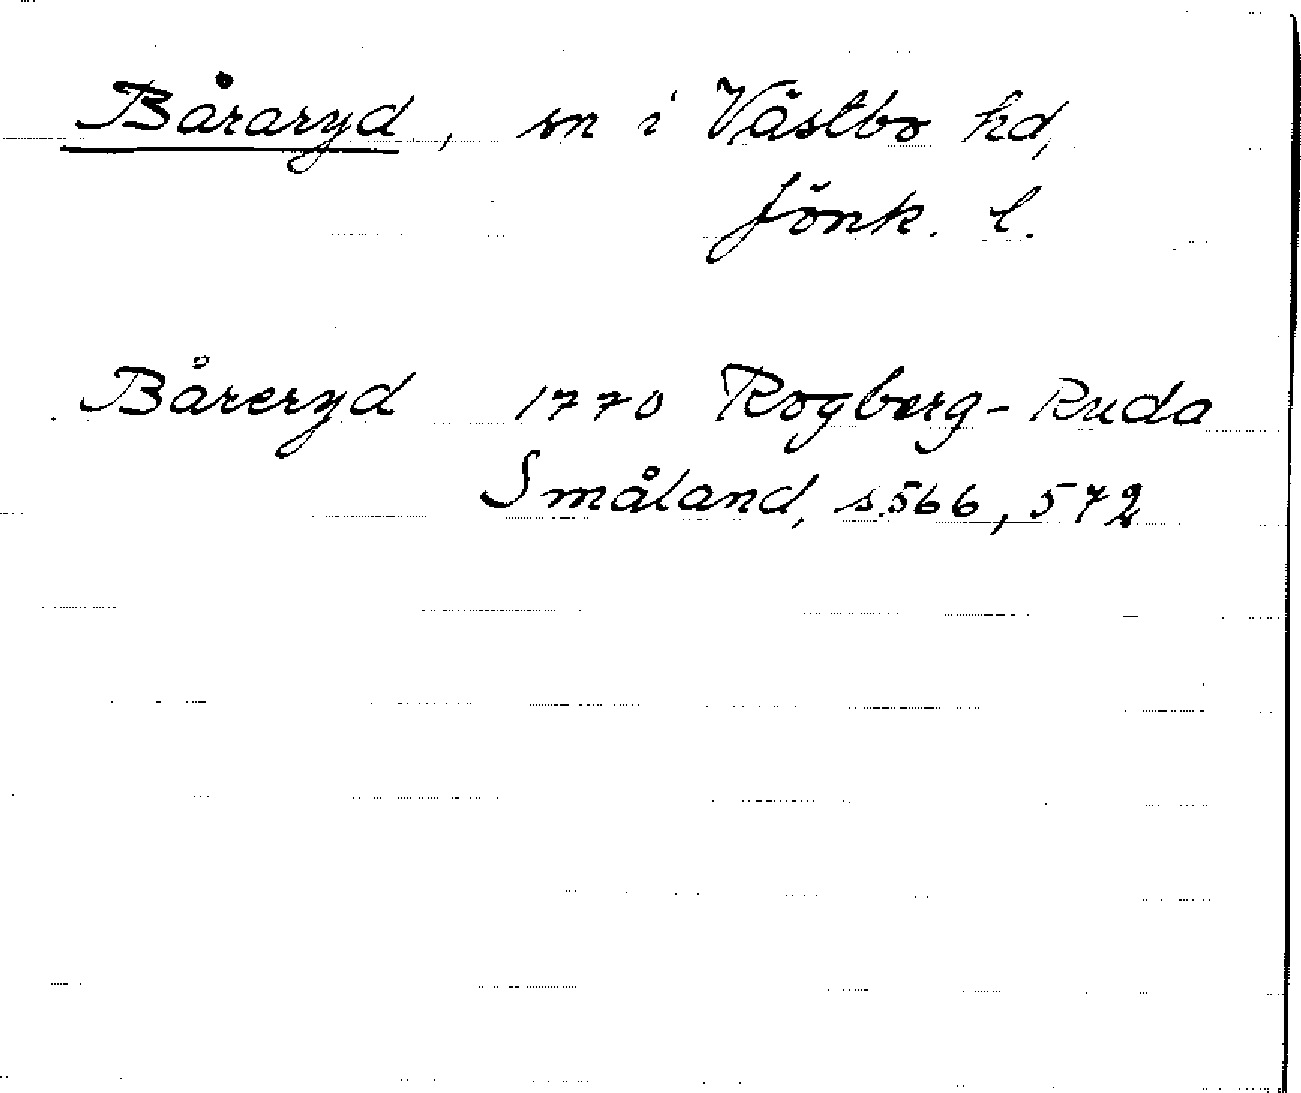 Båraryd, sn i Västbo hd,
Jönk. l.
Båreryd 1770 Rogberg-Ruda
Småland, s.566, 572